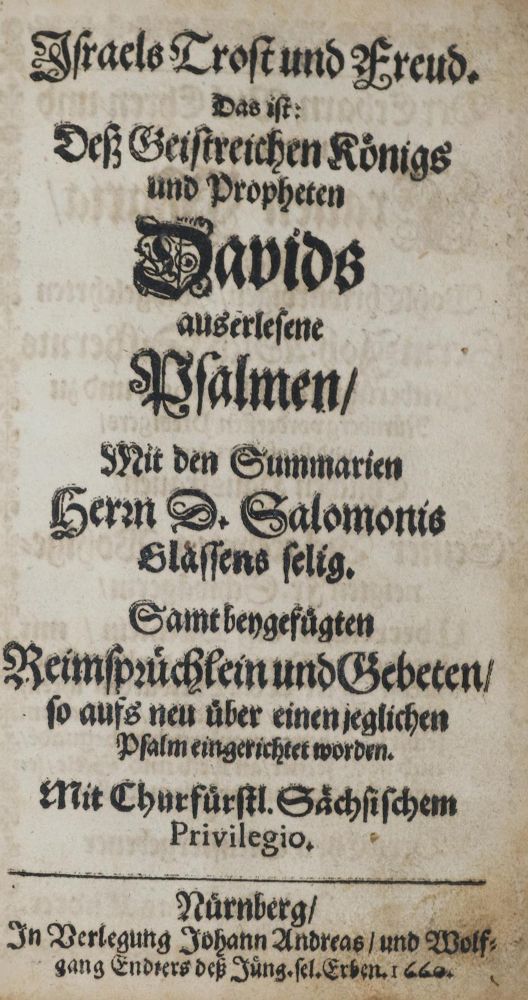 Israels Trost und Freud.
Das ist:
Deß Geistreichen Königs
und Propheten
Davids
auserlesene
Psalmen/
Mit den Summarien
Herrn D. Salomonis
Glässens selig.
Samt beygefügten
Reimsprüchlein und Gebeten/
so aufs neu über einen jeglichen
Psalm eingerichtet worden.
Mit Churfürstl. Sächsischem
Privilegio.
Nürnberg/
In Verlegung Johann Andreas/ und Wolf-
gang Endters deß Jüng. sel. Erben. 1660.